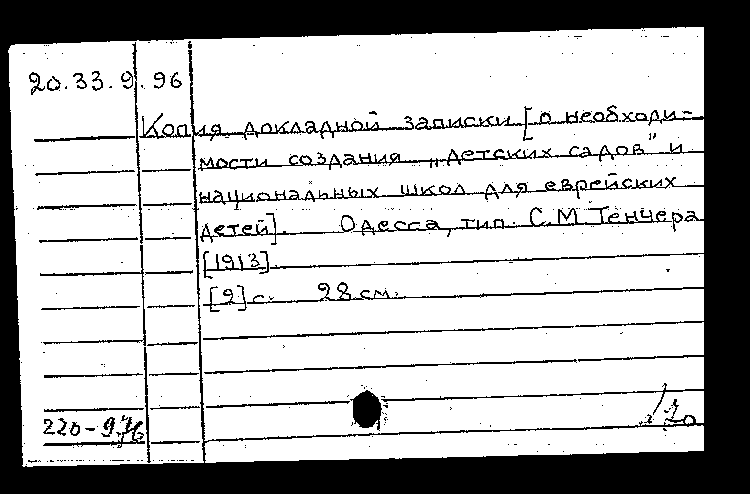 20.33.9.96
Копия докладной записки [о необходи-
мости создания „детских садов" и
национальных школ для еврейских
детей]. Одесса, тип. С.М Тенцера
[1913].
[2] с. 28 см.